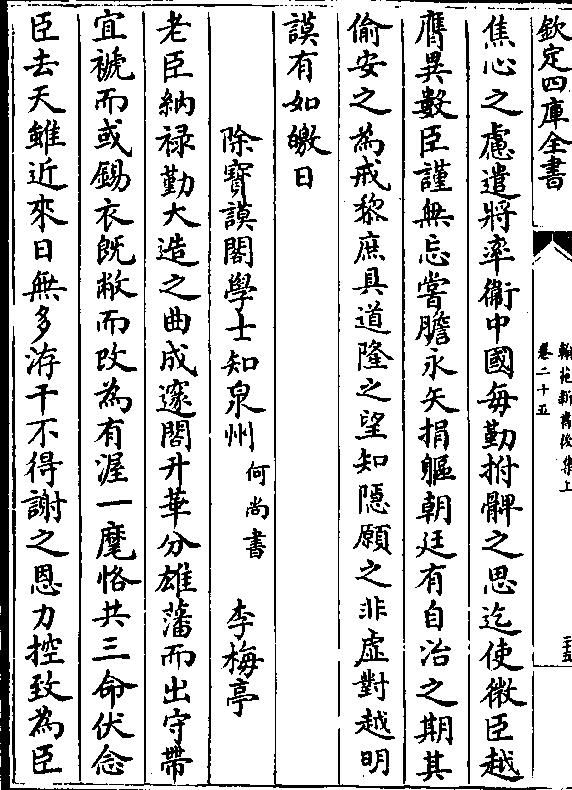 欽定四庫全書
翰苑新書後集上
卷二十五
焦心之慮遣將率衛中國每勤拊髀之思迄使微臣越
膺異數臣謹無忘嘗膽永矢捐軀朝廷有自治之期其
偷安之為戒黎庶具道隆之望知隱願之非虛對越明
謨有如皦日
除寶謨閣學士知泉州 何尚書 李梅亭
老臣納禄勤大造之曲成邃閣升華分雄藩而出守帶
宜褫而或錫衣既敝而改為有渥一麾恪共三命伏念
臣去天雖近來日無多洊干不得謝之恩力控致為臣